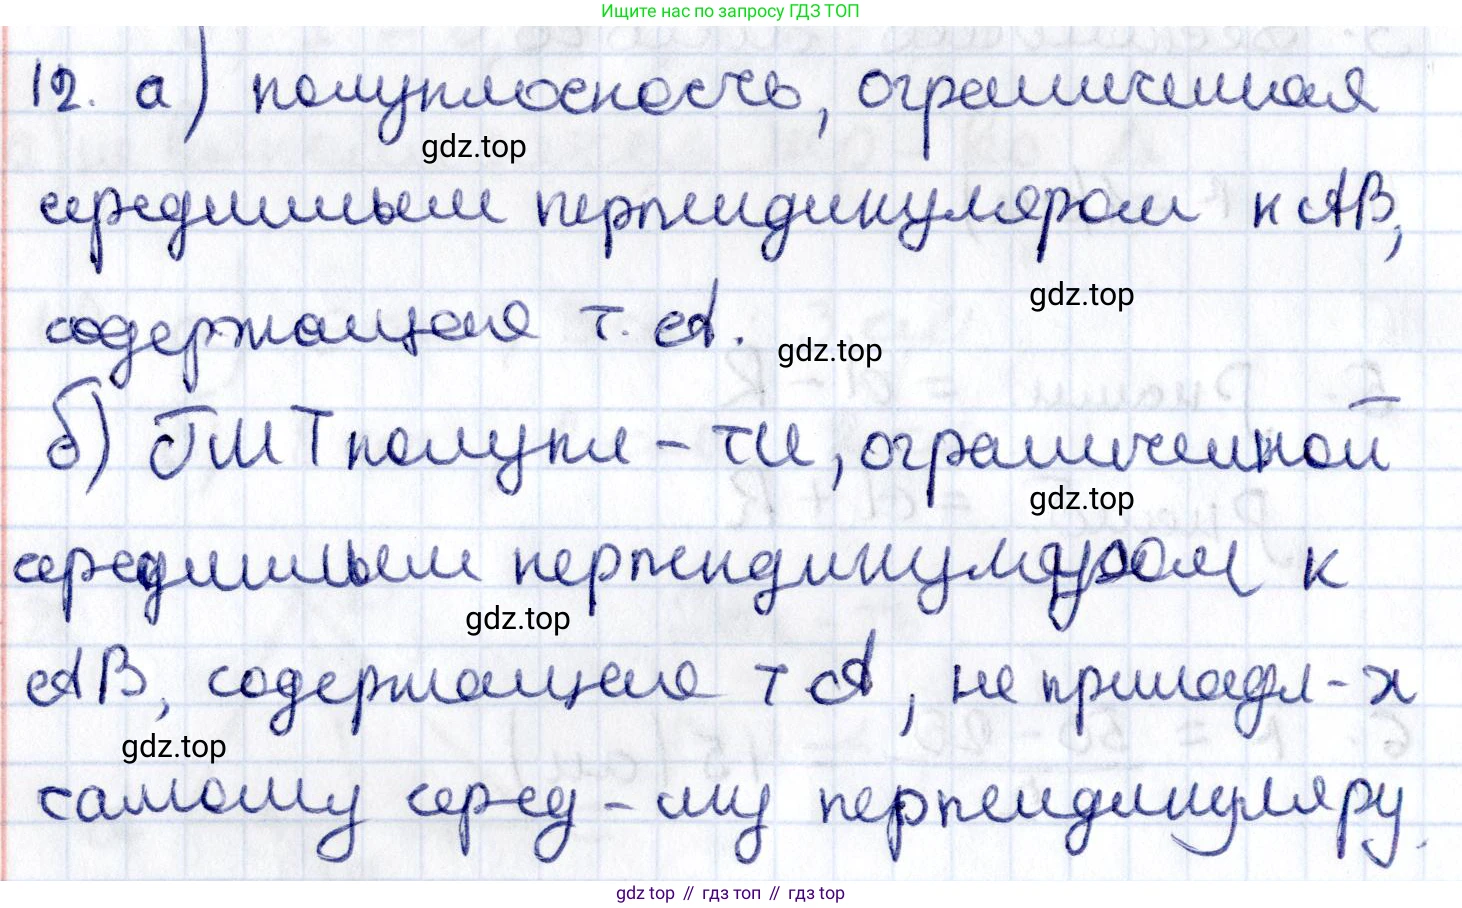 Ищите нас по запросу ГДЗ ТОП
12. а) полуплоскость, ограниченная
gdz.top
серединным перпендикуляром к АВ,
gdz.top
содержащая т. А.
gdz.top
б) ГМТ полупл-ти, ограниченной
gdz.top
серединным перпендикуляром к
gdz.top
АВ, содержащая т А, не принадл-х
gdz.top
самому серед-му перпендикуляру.
gdz top // гдз топ // гдз top